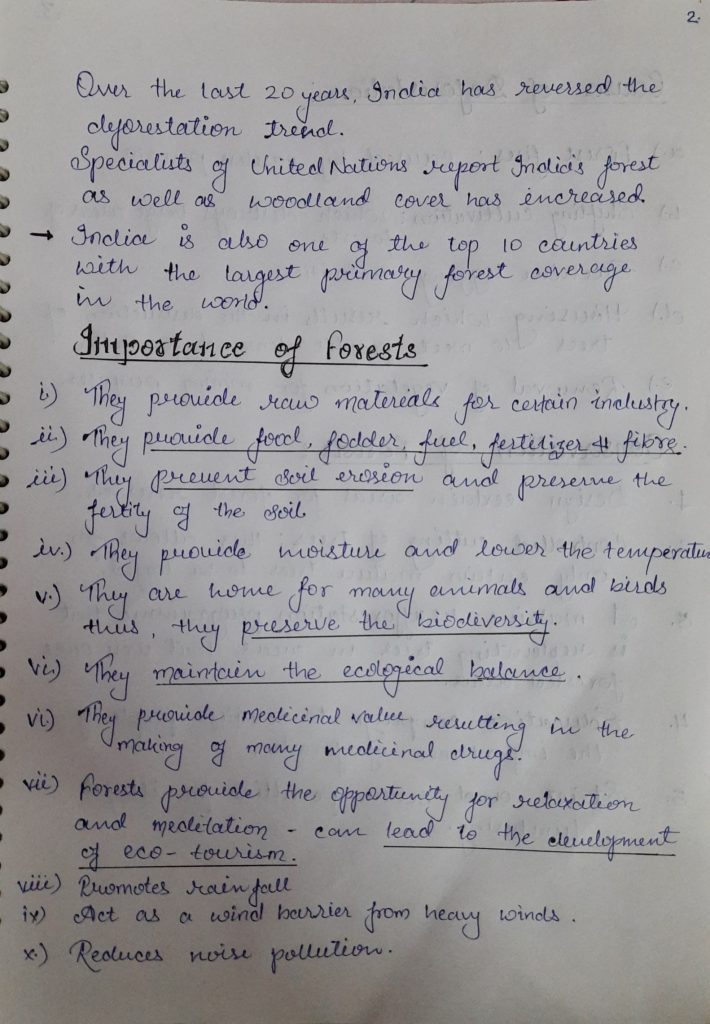 2.
Over the last 20 years, India has reversed the
deforestation trend.
Specialists of United Nations report India's forest
as well as woodland cover has increased.
→ India is also one of the top 10 countries
with the largest primary forest coverage
in the world.
Importance of Forests
i.) They provide raw materials for certain industry.
ii.) They provide food, fodder, fuel, fertilizer & fibre.
iii) They prevent soil erosion and preserve the
fertity of the soil
iv.) They provide moisture and lower the temperatur
v.) They are home for many animals and birds
thus, they preserve the biodiversity.
vi.) They maintain the ecological balance.
vi.) They provide medicinal value resulting in the
making of many medicinal drugs.
vii) Forests provide the opportunity for relaxation
and meditation - can lead to the development
of eco-tourism.
viii) Promotes rainfall
ix) Act as a wind barrier from heavy winds.
x.) Reduces noise pollution.